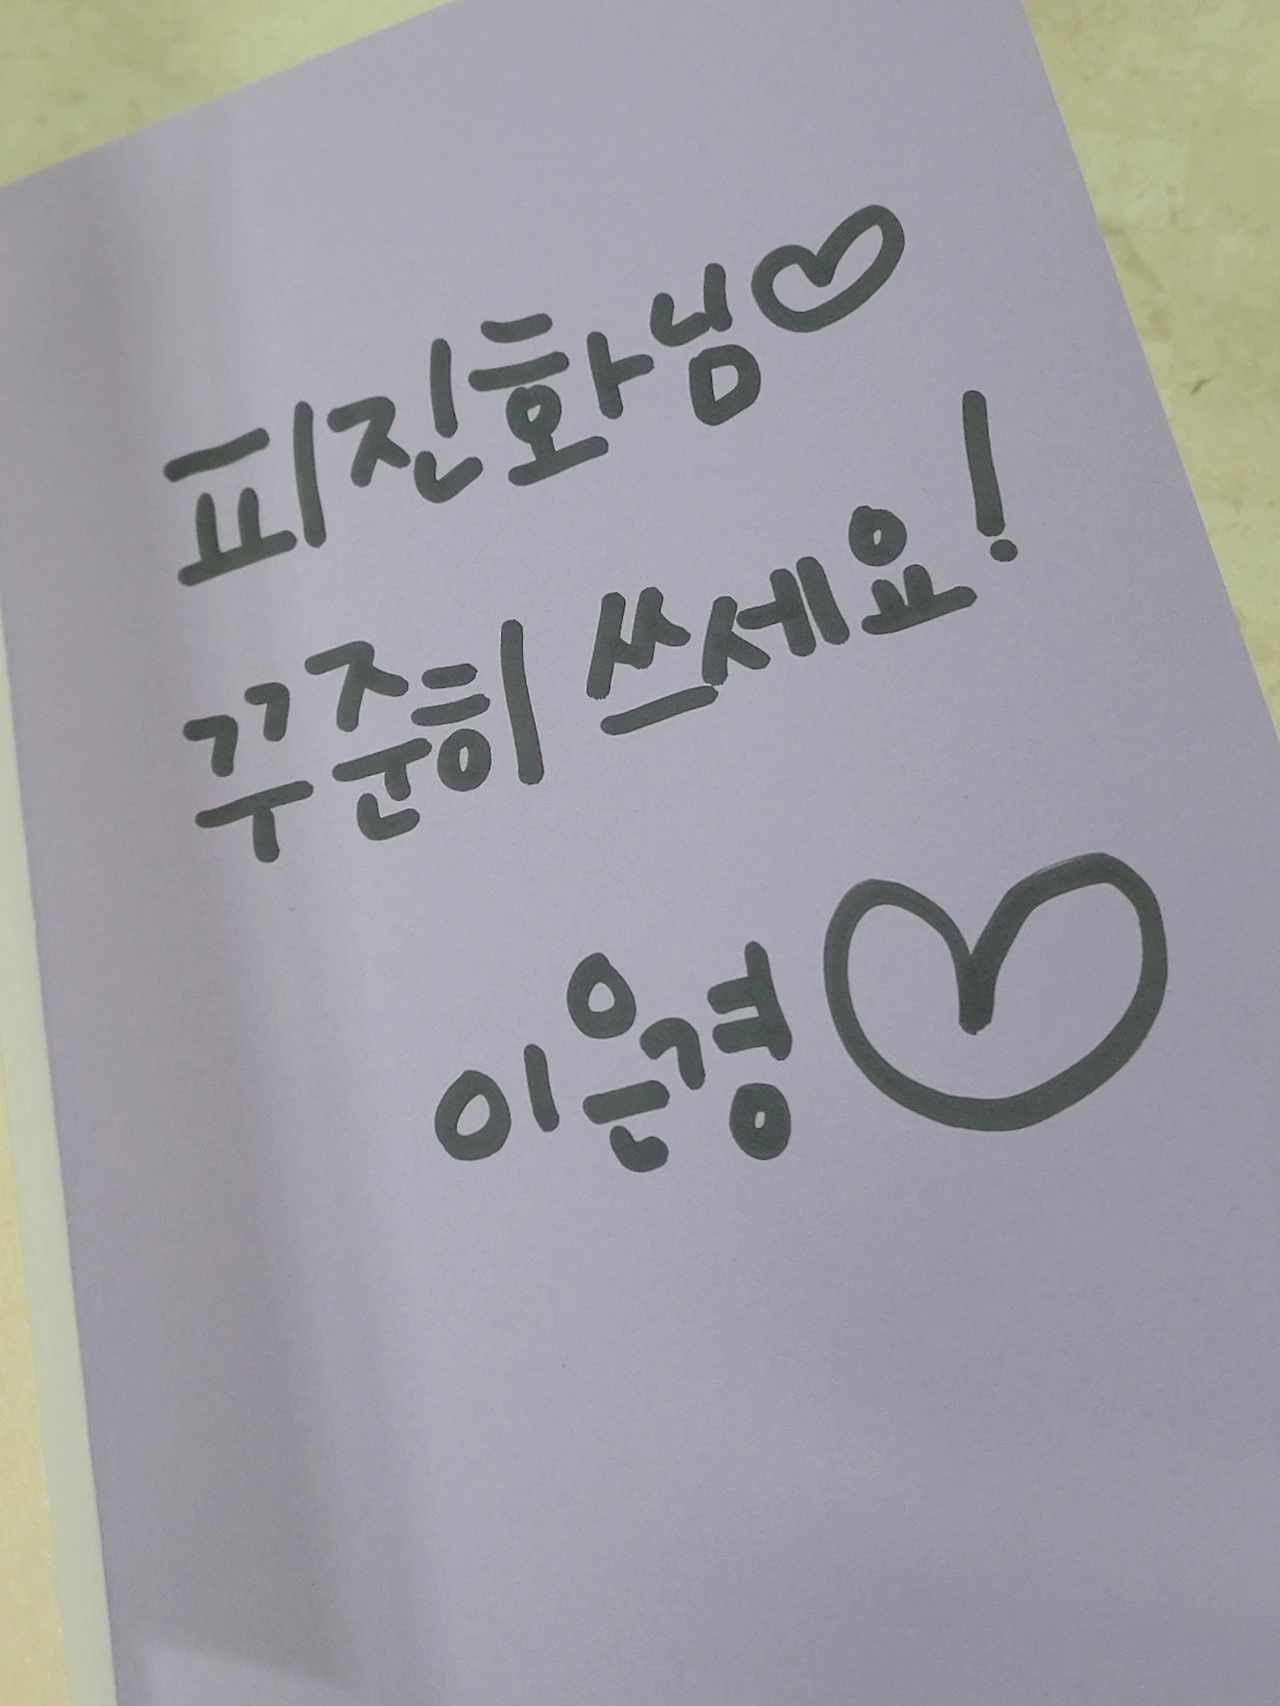 피진화님♡
꾸준히 쓰세요!
이은경♡